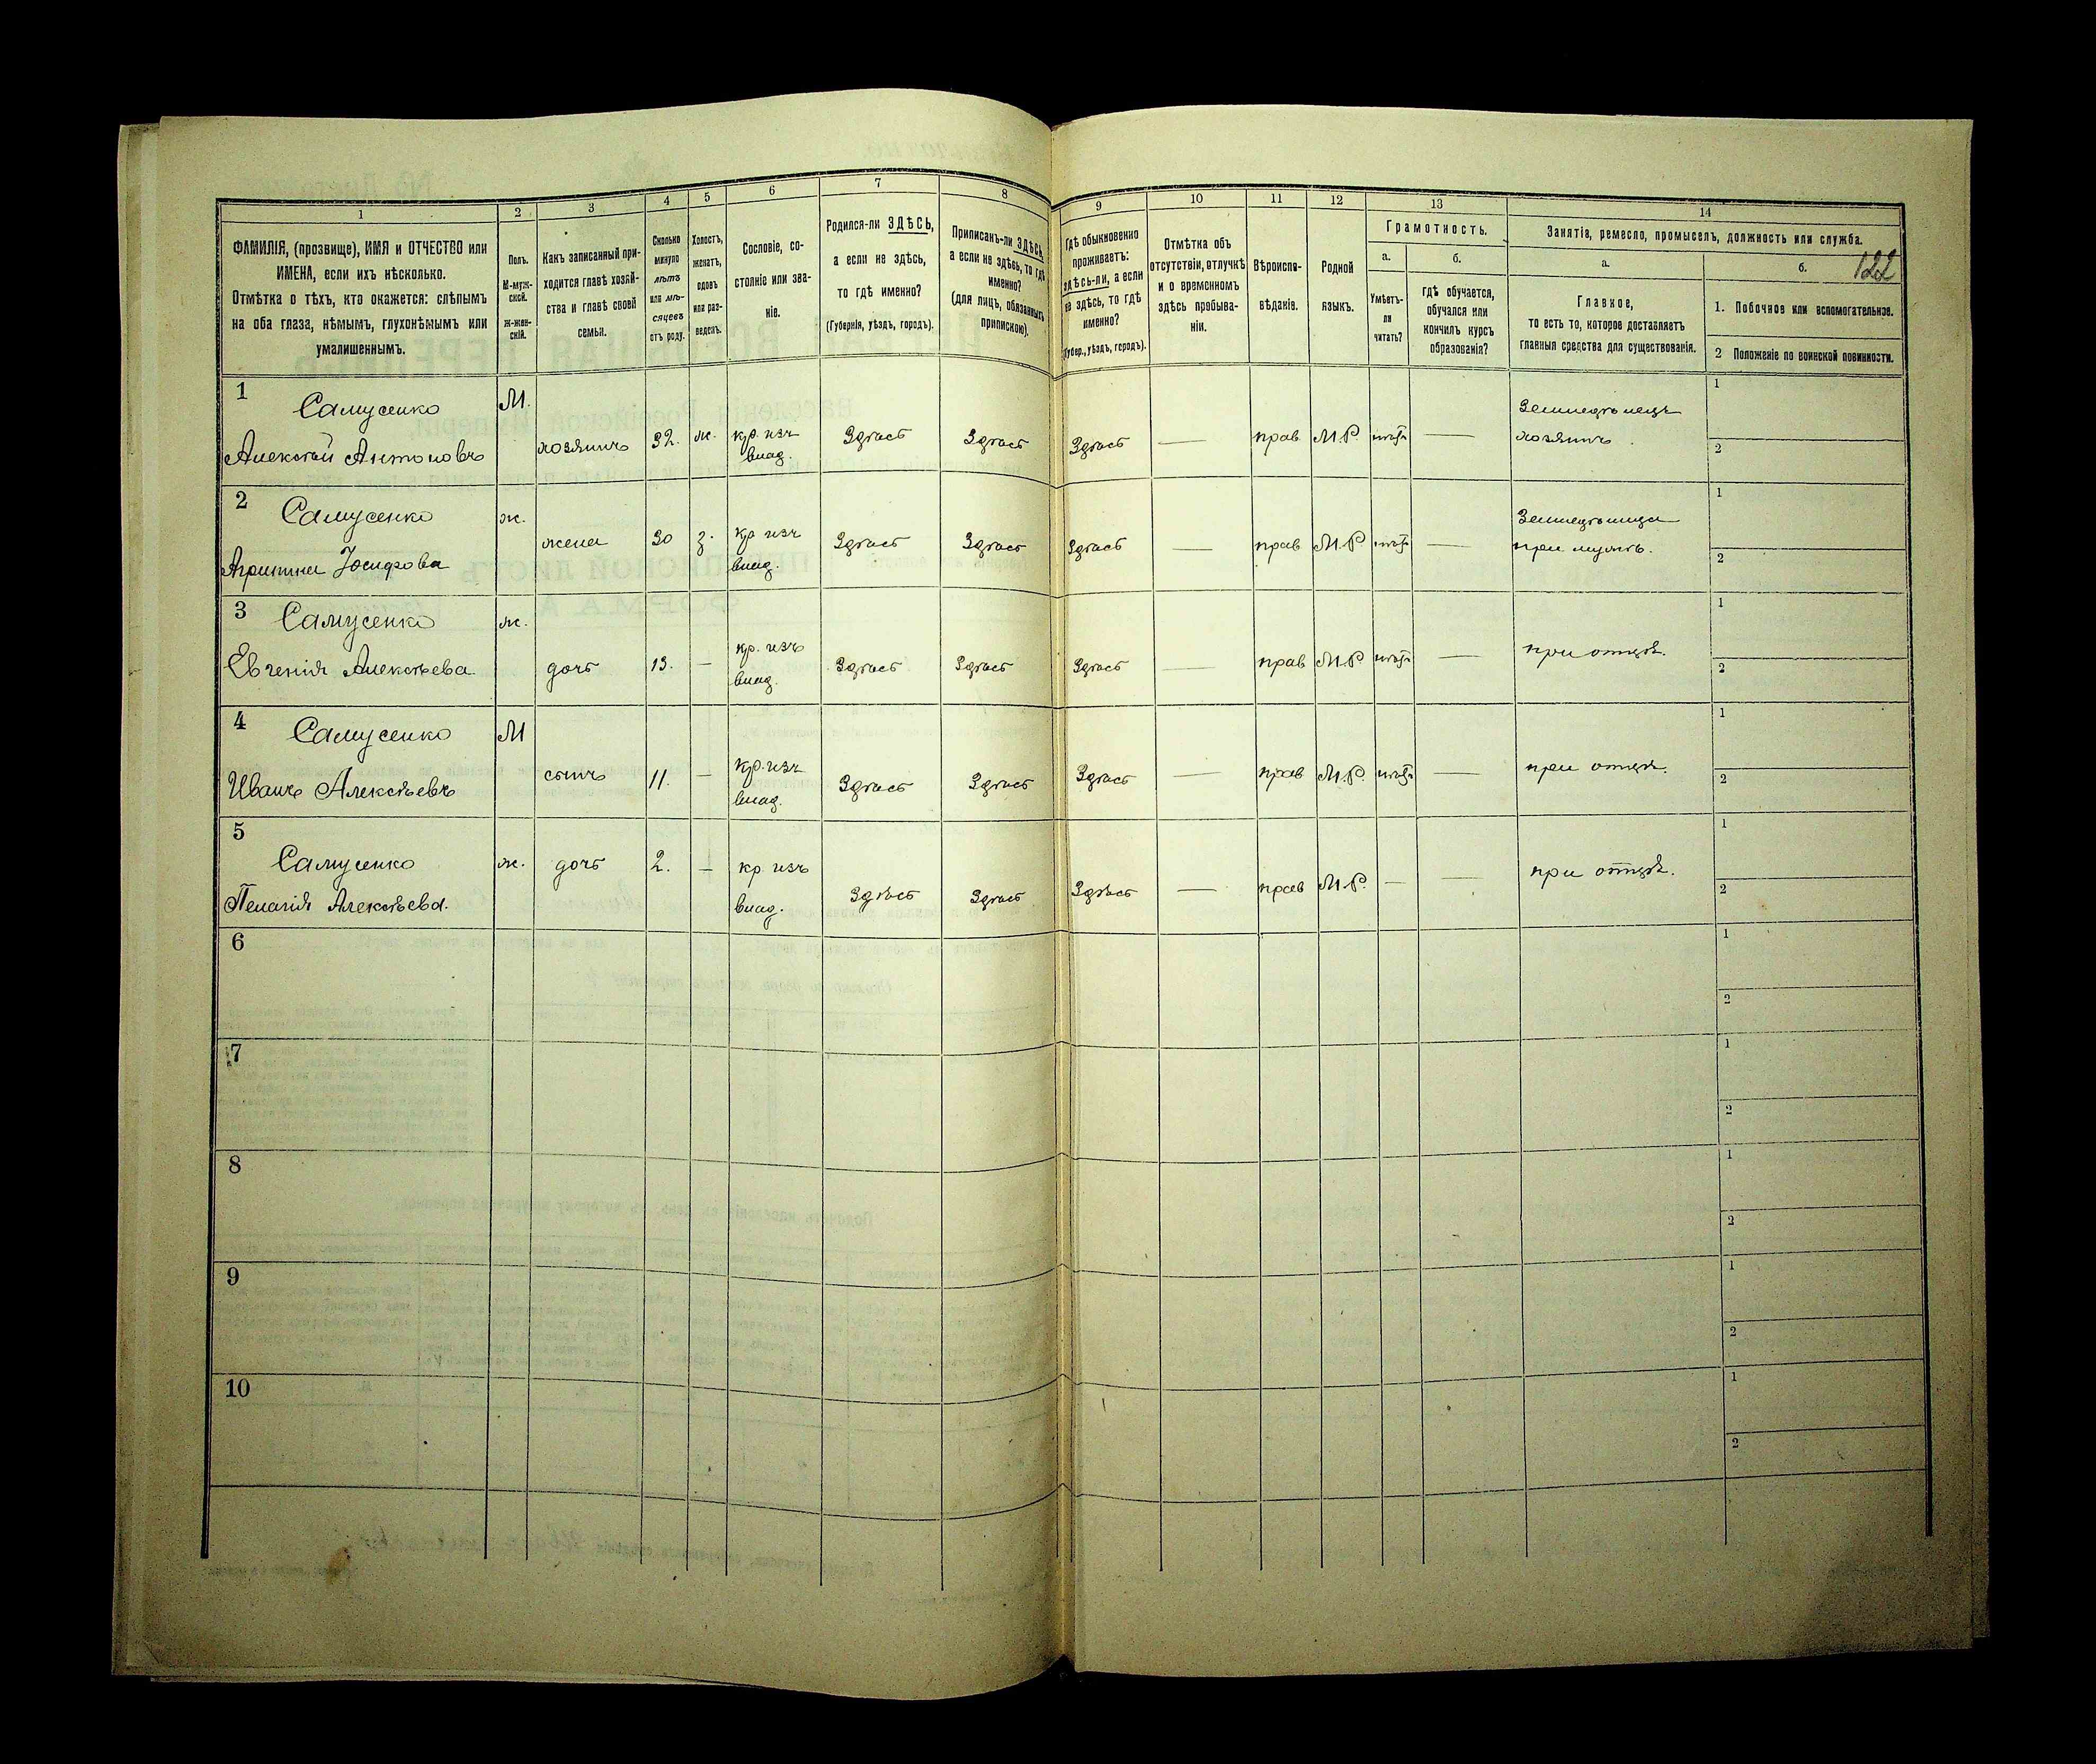 122
1
2
3
4
5
6
7
8
9
10
11
12
13
14
ФАМИЛІЯ, (прозвище), ИМЯ и ОТЧЕСТВО или
ИМЕНА, если ихъ нѣсколько.
Отмѣтка о тѣхъ, кто окажется: слѣпымъ
на оба глаза, нѣмымъ, глухонѣмымъ или
умалишеннымъ.
Полъ.
М-муж-
ской.
Ж-жен-
скій.
Какъ записанный при-
ходится главѣ хозяй-
ства и главѣ своей
семьи.
Сколько
минуло
лѣтъ
или мѣ-
сяцевъ
отъ роду.
Холостъ,
женатъ,
вдовъ
или раз-
веденъ.
Сословіе, со-
стояніе или зва-
ніе.
Родился-ли ЗДѢСЬ,
а если не здѣсь,
то гдѣ именно?
(Губернія, уѣздъ, городъ).
Приписанъ-ли ЗДѢСЬ,
а если не здѣсь, то гдѣ
именно?
(для лицъ, обязанныхъ
припискою).
Гдѣ обыкновенно
проживаетъ:
здѣсь-ли, а если
не здѣсь, то гдѣ
именно?
(Губер., уѣздъ, городъ).
Отмѣтка объ
отсутствіи, отлучкѣ
и о временномъ
здѣсь пребыва-
ніи.
Вѣроиспо-
вѣданіе.
Родной
языкъ.
Грамотность.
а.
Умѣетъ-
ли
читать?
б.
гдѣ обучается,
обучался или
кончилъ курсъ
образованія?
Занятіе, ремесло, промыселъ, должность или служба.
а.
Главное,
то есть то, которое доставляетъ
главныя средства для существованія.
б.
1. Побочное или вспомогательное.
2 Положеніе по воинской повинности.
1
Самусенко
Алексѣй Антоновъ
М.
хозяинъ
32.
ж.
кр. изъ
влад.
Здѣсь
Здѣсь
Здѣсь
—
прав
М.Р.
нѣтъ
—
Земледѣлецъ
хозяинъ
1
2
2
Самусенко
Агрипина Іосифова
ж.
жена
30
з.
кр изъ
влад.
Здѣсь
Здѣсь
Здѣсь
—
прав
М.Р
нѣтъ
—
Земледѣлица
при мужѣ.
1
2
3
Самусенко
Евгенія Алексѣева
ж.
дочь
13.
—
кр. изъ
влад.
Здѣсь
Здѣсь
Здѣсь
—
прав
М.Р
нѣтъ
—
при отцѣ.
1
2
4
Самусенко
Иванъ Алексѣевъ
М
сынъ
11.
—
кр. изъ
влад.
Здѣсь
Здѣсь
Здѣсь
—
прав
М.Р.
нѣтъ
—
при отцѣ.
1
2
5
Самусенко
Пелагія Алексѣева.
ж.
дочь
2.
—
кр изъ
влад.
Здѣсь
Здѣсь
Здѣсь
—
прав
М.Р.
—
—
при отцѣ.
1
2
6
1
2
7
1
2
8
1
2
9
1
2
10
1
2